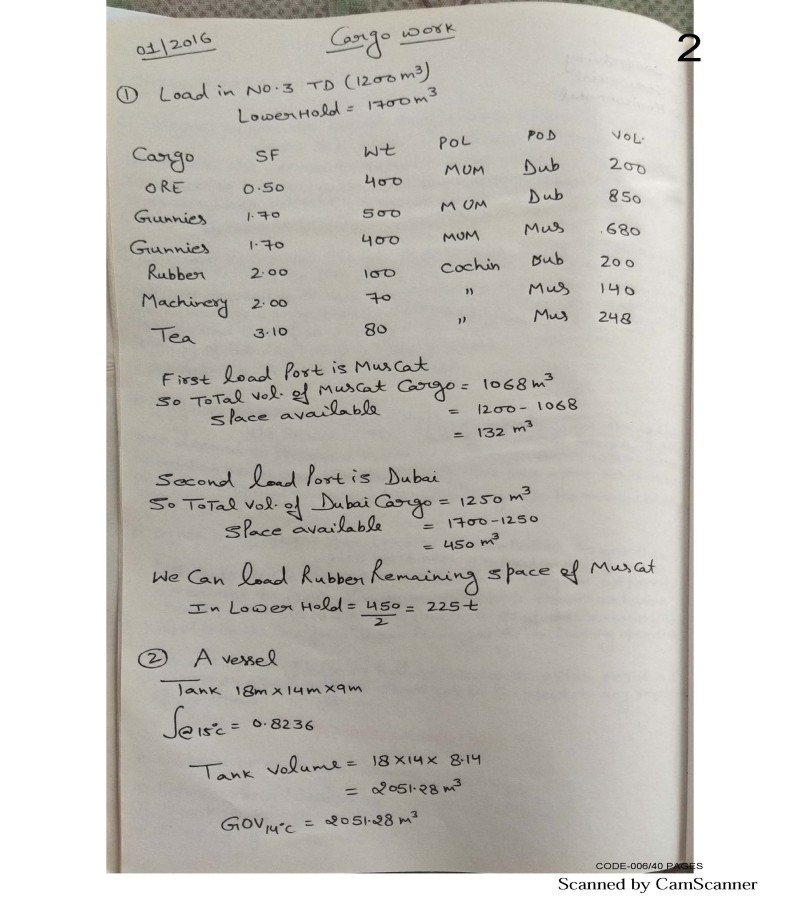 01/2016 Cargo work 2
① Load in NO.3 TD (1200m³)
Lower Hold = 1700m³
Cargo SF Wt POL POD VOL.
ORE 0.50 400 MUM Dub 200
Gunnies 1.70 500 MUM Dub 850
Gunnies 1.70 400 MUM Mus 680
Rubber 2.00 100 Cochin Dub 200
Machinery 2.00 70 " Mus 140
Tea 3.10 80 " Mus 248
First load Port is Muscat
So Total vol. of Muscat Cargo = 1068 m³
Space available = 1200 - 1068
= 132 m³
Second load Port is Dubai
So Total vol. of Dubai Cargo = 1250 m³
Space available = 1700-1250
= 450 m³
We Can load Rubber Remaining space of Muscat
In Lower Hold = 450/2 = 225t
② A vessel
Tank 18m x 14m x 9m
∫@ 15°C = 0.8236
Tank volume = 18 x 14 x 8.14
= 2051.28 m³
GOV14°C = 2051.28 m³
CODE-006/40 PAGES
Scanned by CamScanner